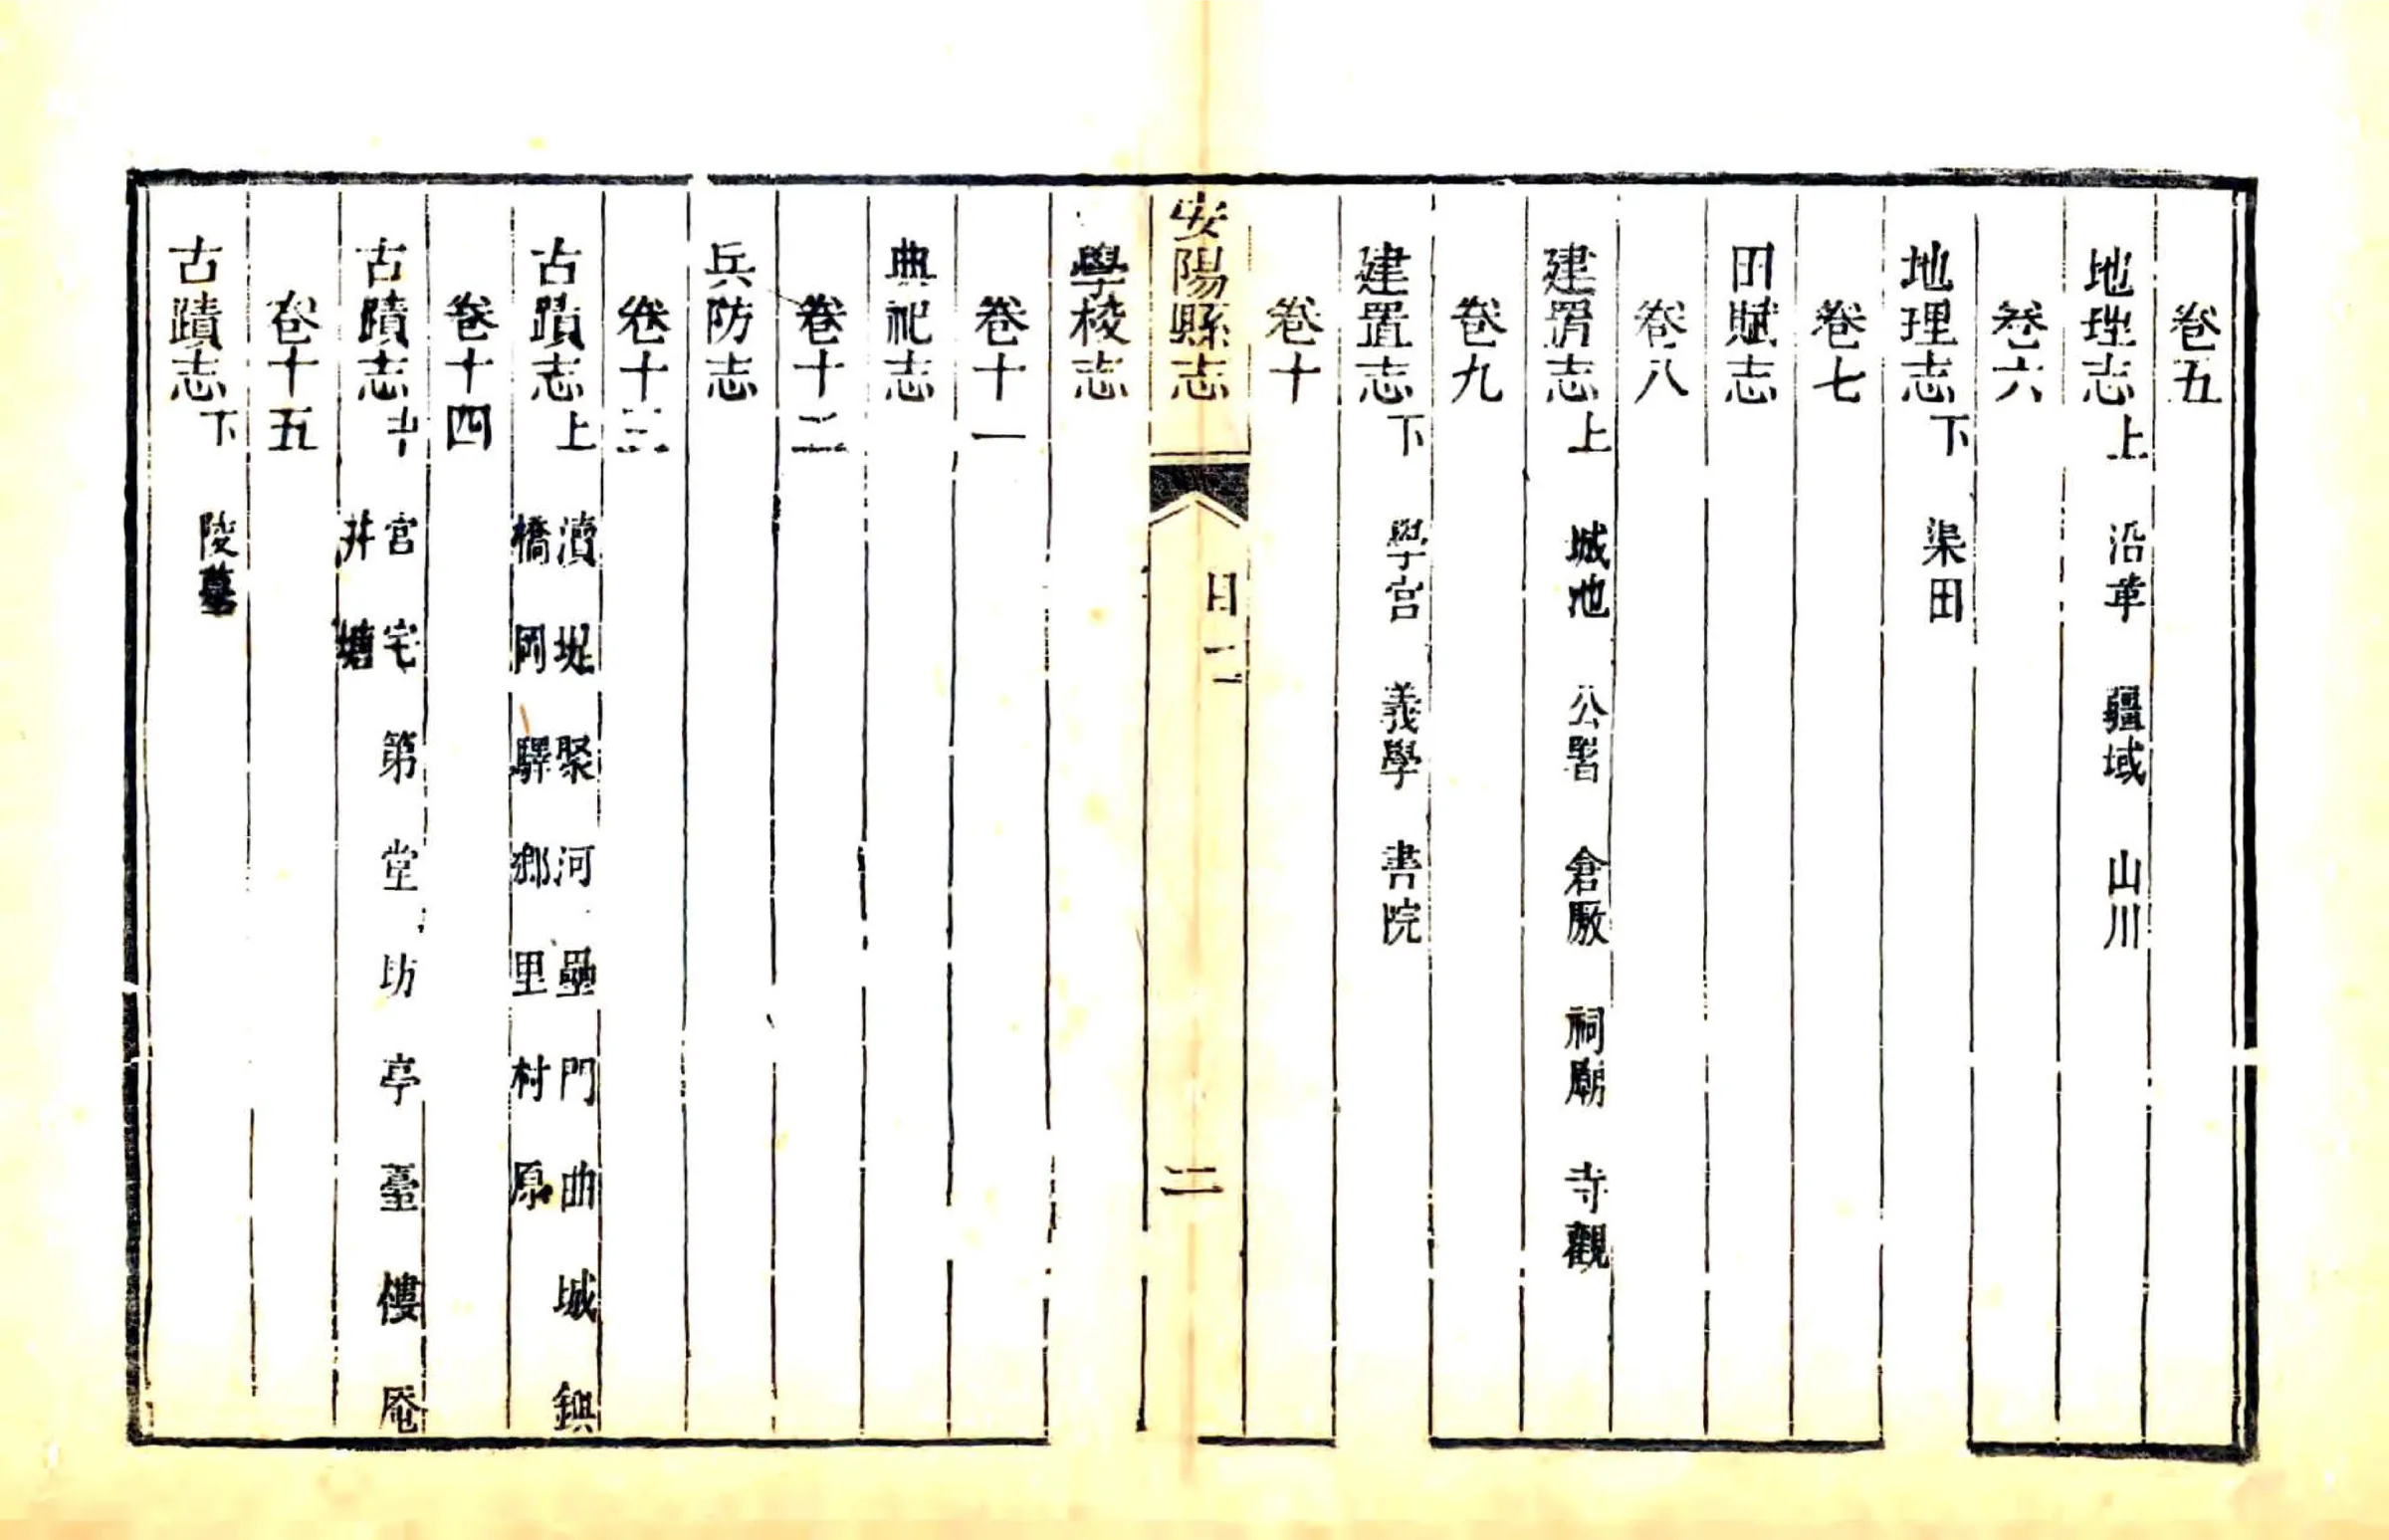 卷五
地理志上 沿革 疆域 山川
卷六
地理志下 渠田
卷七
田賦志
卷八
建置志上 城池 公署 倉廒 祠廟 寺觀
卷九
建置志下 學宮 義學 書院
卷十
安陽縣志 目二 二
學校志
卷十一
典祀志
卷十二
兵防志
卷十三
古蹟志上 瀆 堤 聚 河 壘 門 曲 城 鎮
橋 岡 驛 鄉 里 村 原
卷十四
古蹟志中 宮 宅 第 堂 坊 亭 臺 樓 庵
井 塘
卷十五
古蹟志下 陵墓